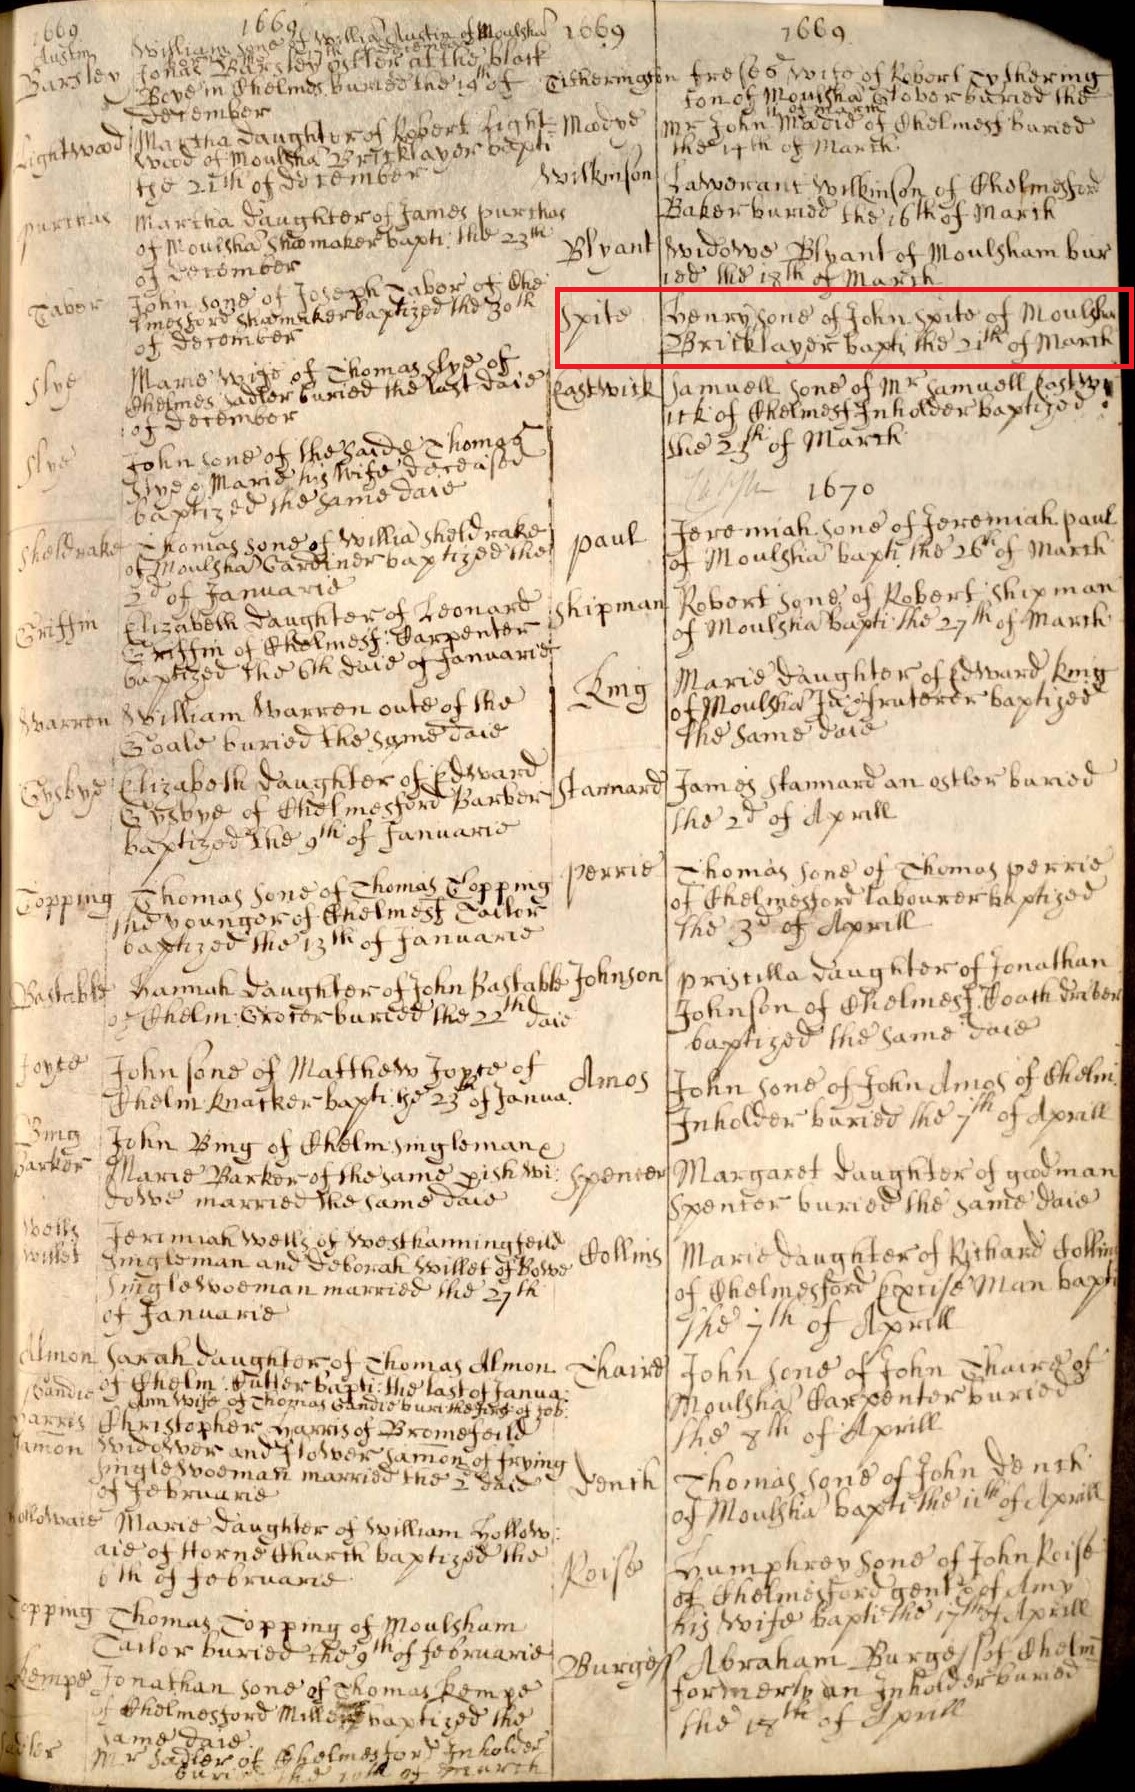 1669
1669
Austin William sone of Willia Austin of Moulsha
Barsley Jonas Barsley ostler at the black
Boye in Chelmes: buried the 19th of
December
Lightwood Martha daughter of Robert Light=
wood of Moulsha Bricklayer bapti
the 21th of December
purchas Martha daughter of James purchas
of Moulsha Shoomaker bapti: the 23th
of December
Tabor John sone of Joseph Tabor of Che
lmesford Shoomaker baptized the 30th
of December
Slye Marie wife of Thomas Slye of
Chelmes: Sadler buried the last daie
of December
Slye John sone of the saide Thomas
Slye & Marie his wife deceased
baptized the same daie
Sheldrake Thomas sone of Willia Sheldrake
of Moulsha Gardiner baptized the
2d of Januarie
Griffin Elizabeth daughter of Leonard
Griffin of Chelmesf: Carpenter
baptized the 6th daie of Januarie
Warren William Warren oute of the
Goale buried the same daie
Gysbye Elizabeth daughter of Edward
Gysbye of Chelmesford Barber
baptized the 9th of Januarie
Topping Thomas sone of Thomas Topping
the younger of Chelmesf Tailor
baptized the 13th of Januarie
Bastable Hannah daughter of John Bastable
of Chelm: Grocer buried the 22th daie
Joyce John sone of Matthew Joyce of
Chelm knacker bapti: the 23th of Janua:
Bing John Bing of Chelm: singleman &
Barker Marie Barker of the same pish wi:
dowe married the same daie
Wells Jeremiah Wells of Westhanningfeild
Willet singleman and Deborah Willet of Bowe
singlewoeman married the 27th
of Januarie
Almon Sarah daughter of Thomas Almon
of Chelm: Cutler bapti: the last of Janua:
Gandie Ann wife of Thomas Gandie buri the of feb:
Harris Christopher Harris of Bromefeild
Samon widower and flower Samon of frying
singlewoeman married the 2d daie
of februarie
Hollowaie Marie daughter of William Hollow:
aie of Horne Church baptized the
6th of februarie
Topping Thomas Topping of Moulsham
Tailor buried the 9th of februarie
Kempe Jonathan sone of Thomas Kempe
of Chelmesford Miller baptized the
same daie
Sadler Mr Sadler of Chelmesford Inholder
buried the 10th of March
1669
1669
Titherington freses wife of Robert Tythering
ton of Moulsha Glover buried the
11 of March
Moodye Mr John Moodie of Chelmesf buried
the 14th of March
Wilkinson Lawerant Wilkinson of Chelmesford
Baker buried the 16th of March
Blyant Widowe Blyant of Moulsham bur
ied the 18th of March
Spite Henry sone of John Spite of Moulsha
Bricklayer bapti the 21th of March
Eastwick Samuell sone of Mr Samuell Eastw
ick of Chelmesf Inholder baptized
the 23th of March
1670
paul Jeremiah sone of Jeremiah paul
of Moulsha bapti the 26th of March
Shipman Robert sone of Robert Shipman
of Moulsha bapti the 27th of March
King Marie daughter of Edward King
of Moulsha fruterer baptized
the same daie
Stannard James Stannard an ostler buried
the 2d of Aprill
perrie Thomas sone of Thomas perrie
of Chelmesford labourer baptized
the 3d of Aprill
Johnson priscilla daughter of Jonathan
Johnson of Chelmesf Coach driver
baptized the same daie
Amos John sone of John Amos of Chelm:
Inholder buried the 7th of Aprill
Spencer Margaret daughter of goodman
Spencer buried the same daie
Collins Marie daughter of Richard Collins
of Chelmesford Excise Man bapti
the 7th of Aprill
Thaire John sone of John Thaire of
Moulsha Carpenter buried
the 8th of Aprill
Dench Thomas sone of John Dench
of Moulsha bapti the 11th of Aprill
Roise Humphrey sone of John Roise
of Chelmesford gent & of Amy
his wife bapti the 17th of Aprill
Burgess Abraham Burgess of Chelm
formerly an Inholder buried
the 18th of Aprill